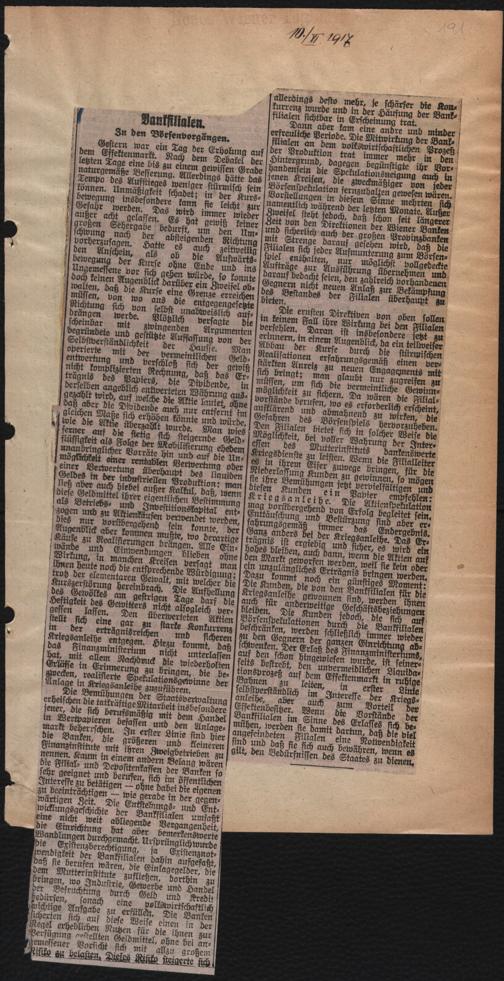 10./II 1917
191
Bankfilialen.
Zu den Börsenvorgängen.
Gestern war ein Tag der Erholung auf
dem Effektenmarkt. Nach dem Debakel der
letzten Tage eine bis zu einem gewissen Grade
naturgemäße Besserung. Allerdings hätte das
Tempo des Aufstieges weniger stürmisch sein
können. Unmäßigkeit schadet; in der Kurs-
bewegung insbesondere kann sie leicht zur
Gefahr werden. Das wird immer wieder
außer acht gelassen. Es hat gewiß keiner
großen Sehergabe bedurft, um den Um-
schwung nach der absteigenden Richtung
vorherzusagen. Hatte es auch zeitweilig
den Anschein, als ob die Aufwärts-
bewegung der Kurse ohne Ende und ins
Ungemessene vor sich gehen würde, so konnte
doch keinen Augenblick darüber ein Zweifel ob-
walten, daß die Kurse eine Grenze erreichen
müssen, von wo aus die entgegengesetzte
Richtung sich von selbst unabweislich auf-
drängen werde. Plötzlich versagte die
scheinbar mit zwingenden Argumenten
begründete und gestützte Auffassung von der
Selbstverständlichkeit der Hausse. Man
operierte mit der vermeintlichen Geld-
entwertung und verschloß sich der gewiß
nicht komplizierten Rechnung, daß das Er-
trägnis des Papiers, die Dividende, in
derselben angeblich entwerteten Währung aus-
gezahlt wird, auf welche die Aktie lautet, ohne
daß aber die Dividende auch nur entfernt im
gleichen Maße sich erhöhen könnte und würde,
wie die Aktie überzahlt wurde. Man wies
ferner auf die stetig sich steigernde Geld-
flüssigkeit als Folge der Mobilisierung ehedem
unandringlicher Vorräte hin und auf die Un-
möglichkeit einer rentablen Verwertung oder
einer Verwertung überhaupt des liquiden
Geldes in der industriellen Produktion; man
ließ aber auch hiebei außer Kalkul, daß, wenn
diese Geldmittel ihrer eigentlichen Bestimmung
als Betriebs- und Investitionskapital ent-
zogen und zu Aktienkäufen verwendet werden,
dies nur vorübergehend sein konnte, der
Augenblick aber kommen mußte, wo derartige
Käufe zu Realisierungen drängen. Alle Ein-
wände und Einwendungen blieben ohne
Wirkung, in manchen Kreisen versagt man
ihnen heute noch die entsprechende Würdigung,
trotz der elementaren Gewalt, mit welcher die
Kurszerstörung hereinbrach. Die Aufhellung
des Gewölkes am gestrigen Tage darf die
Heftigkeit des Gewitters nicht allsogleich ver-
gessen lassen. Den überwerteten Aktien
stellt sich eine gar zu starke Konkurrenz
in der erträgnisreichen und sicheren
Kriegsanleihe entgegen. Hiezu kommt, daß
das Finanzministerium nicht unterlassen
hat, mit allem Nachdruck die wiederholten
Erlässe in Erinnerung zu bringen, die be-
zwecken, realisierte Spekulationsgewinne der
Anlage in Kriegsanleihe zuzuführen.
Die Bemühungen der Staatsverwaltung
erheischen die tatkräftige Mitarbeit insbesondere
jener, die sich berufsmäßig mit dem Handel
in Wertpapieren befassen und den Anlage-
markt beherrschen. In erster Linie sind hier
die Banken, die größeren und kleineren
Finanzinstitute mit ihren Zweigbetrieben zu
nennen. Kaum in einem andern Belang wären
die Filial- und Depositenkassen der Banken so
sehr geeignet und berufen, sich im öffentlichen
Interesse zu betätigen — ohne dabei die eigenen
zu beeinträchtigen — wie gerade in der gegen-
wärtigen Zeit. Die Entstehungs- und Ent-
wicklungsgeschichte der Bankfilialen umfaßt
eine nicht weit abliegende Vergangenheit,
die Einrichtung hat aber bemerkenswerte
Wandlungen durchgemacht. Ursprünglich wurde
die Existenzberechtigung, ja Existenznot-
wendigkeit der Bankfilialen dahin aufgefaßt,
daß sie berufen wären, die Einlagegelder, die
dem Mutterinstitute zufließen, dorthin zu
bringen, wo Industrie, Gewerbe und Handel
der Befruchtung durch Geld und Kredit
bedürfen, sonach eine volkswirtschaftlich
wichtige Aufgabe zu erfüllen. Die Banken
sicherten sich auf diese Weise einen in der
Regel erheblichen Nutzen für die ihnen zur
Verfügung gestellten Geldmittel, ohne bei an-
gemessener Vorsicht sich mit allzu großem
Risiko zu belasten. Dieses Risiko steigerte sich
allerdings desto mehr, je schärfer die Kon-
kurrenz wurde und in der Häufung der Bank-
filialen sichtbar in Erscheinung trat.
Dann aber kam eine andre und minder
erfreuliche Periode. Die Mitwirkung der Bank-
filialen an dem volkswirtschaftlichen Prozeß
der Produktion trat immer mehr in den
Hintergrund, dagegen begünstigte ihr Vor-
handensein die Spekulationsneigung auch in
jenen Kreisen, die zweckmäßiger von jeder
Börsenspekulation fernzuhalten gewesen wären.
Vorstellungen in diesem Sinne mehrten sich
namentlich während der letzten Monate. Außer
Zweifel steht jedoch, daß schon seit längerer
Zeit von den Direktionen der Wiener Banken
und sicherlich auch der großen Provinzbanken
mit Strenge darauf gesehen wird, daß die
Filialen sich jeder Aufmunterung zum Börsen-
spiel enthalten, nur möglichst vollgedeckte
Aufträge zur Ausführung übernehmen und
darauf bedacht seien, den zahlreich vorhandenen
Gegnern nicht neuen Anlaß zur Bekämpfung
des Bestandes der Filialen überhaupt zu
bieten.
Die ernsten Direktiven von oben sollen
in keinem Fall ihre Wirkung bei den Filialen
verfehlen. Daran ist insbesondere jetzt zu
erinnern, in einem Augenblick, da ein teilweiser
Abbau der Kurse durch die stürmischen
Realisationen erfahrungsgemäß einen ver-
stärkten Anreiz zu neuen Engagements mit
sich bringt; man glaubt nur zugreifen zu
müssen, um sich die vermeintliche Gewinn-
möglichkeit zu sichern. Da wären die Filial-
vorstände berufen, wo es erforderlich erscheint,
aufklärend und abmahnend zu wirken, die
Gefahren des Börsenspiels hervorzuheben.
Den Filialen bietet sich in solcher Weise die
Möglichkeit, bei voller Wahrung der Inter-
essen des Mutterinstituts dankenswerte
Kriegsdienste zu leisten. Wenn die Filialleiter
es in ihrem Eifer zuwege bringen, für die
Niederlassung Kunden zu gewinnen, so mögen
sie ihre Bemühungen jetzt vervielfältigen und
diesen Kunden ein Papier empfehlen:
Kriegsanleihe. Die Aktienspekulation
mag vorübergehend von Erfolg begleitet sein,
Enttäuschung und Besitzung sind aber er-
fahrungsgemäß immer das Endergebnis.
Ganz anders bei der Kriegsanleihe. Das Er-
trägnis ist ergiebig und sicher, es wird ein
hohes bleiben, auch dann, wenn die Aktien auf
den Markt geworfen werden, weil sie kein oder
ein unzulängliches Erträgnis bringen werden.
Dazu kommt noch ein günstiges Moment:
Die Kunden, die von den Bankfilialen für die
Kriegsanleihe gewonnen sind, werden ihnen
auch für anderweitige Geschäftsbeziehungen
bleiben. Die Kunden jedoch, die sich auf
Börsenspekulationen durch die Bankfilialen
einlassen, werden schließlich immer wieder
zu den Gegnern der ganzen Einrichtung ab-
schwenken. Der Erlaß des Finanzministeriums,
auf den schon hingewiesen wurde, ist seiner-
seits bestrebt, den unvermeidlichen Liquida-
tionsprozeß auf dem Effektenmarkt in ruhige
Bahnen zu leiten, in erster Linie
selbstverständlich im Interesse der Kriegs-
anleihe, aber auch zum Vorteil der
Effektenbesitzer. Wenn die Vorstände der
Bankfilialen im Sinne des Erlasses sich be-
mühen, werden sie damit dartun, daß die viel
angefeindeten Filialen eine Notwendigkeit
sind und daß sie sich auch bewähren, wenn es
gilt, den Bedürfnissen des Staates zu dienen.